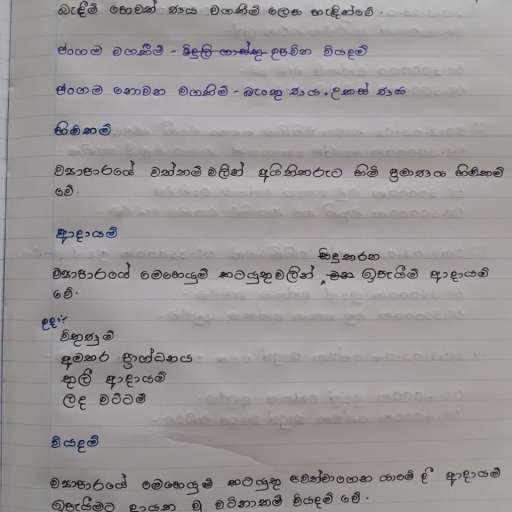 බැඳීම් හෙවත් ණය වගකීම් ලෙස හැඳින්වේ.
ජංගම වගකීම් - විදුලි ගාස්තු උපචිත වියදම්
ජංගම නොවන වගකීම් - බැංකු ණය, උකස් ණය
හිමිකම්
ව්‍යාපාරයේ වත්කම් වලින් අයිතිකරුට හිමි ප්‍රමාණය හිමිකම්
වේ.
ආදායම්
සිදුකරන
ව්‍යාපාරයේ මෙහෙයුම් කටයුතු වලින් ඉපැයීම් ආදායම්
වේ.
උදා:-
විකුණුම්
අමතර ප්‍රාග්ධනය
කුලී ආදායම්
ලද වට්ටම්
වියදම්
ව්‍යාපාරයේ මෙහෙයුම් කටයුතු පවත්වාගෙන යාමේ දී ආදායම්
ඉපැයීමට දායක වූ වටිනාකම් වියදම් වේ.